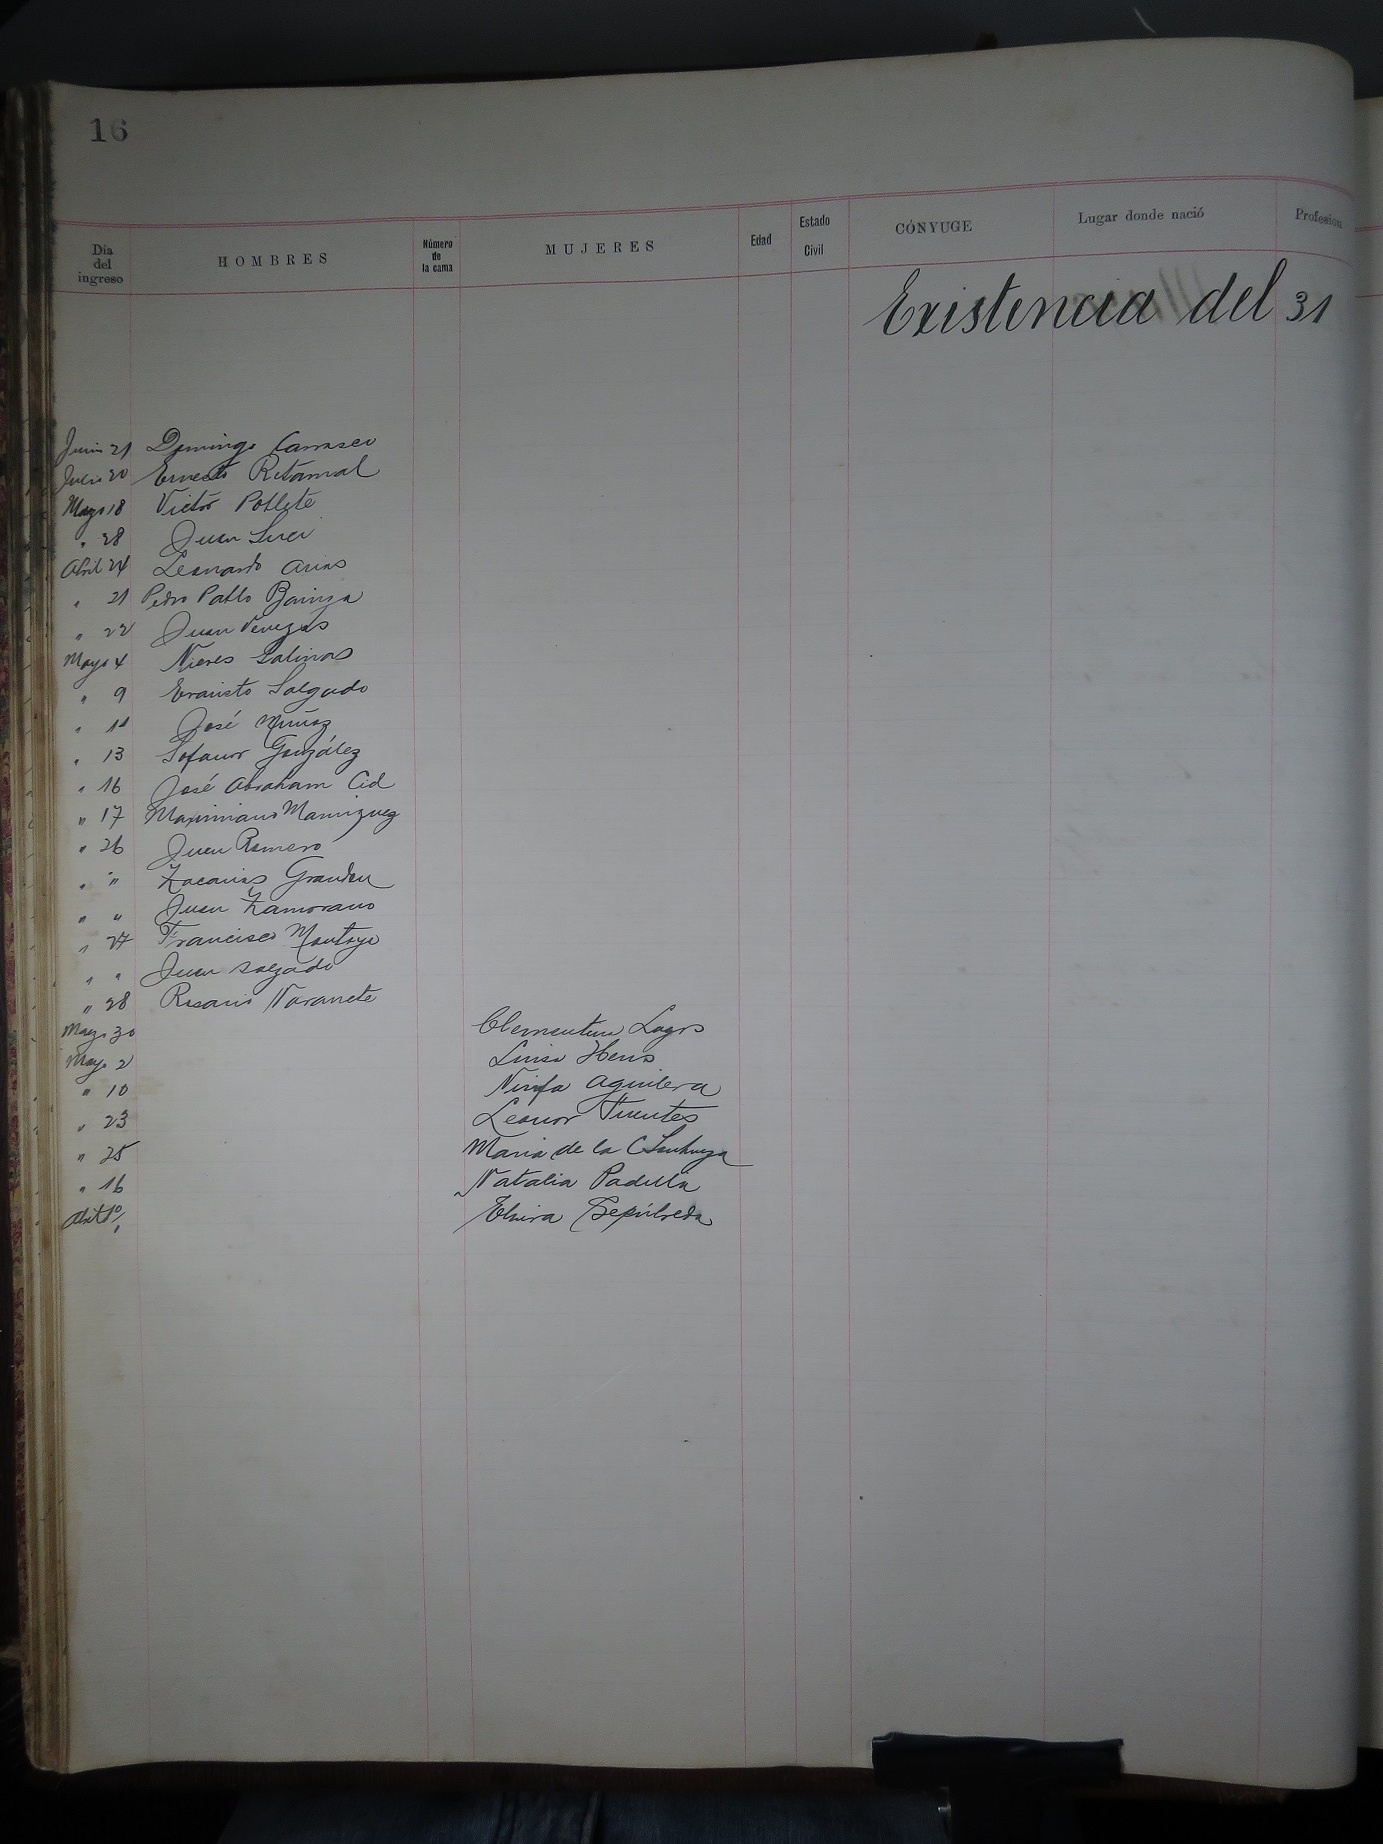 16
Día del ingreso HOMBRES Número de la cama MUJERES Edad Estado Civil CÓNYUGE Lugar donde nació Profesion
Existencia del 31
Junio 21 Domingo Carrasco
Julio 20 Ernesto Retamal
Marzo 18 Victor Poblete
" 28 Juan
Abril 24 Leonardo Arias
" 21 Pedro Pablo
" 22 Juan Venegas
Mayo 4 Nieves Salinas
" 9 Evaristo Salgado
" 11 José Muñoz
" 13 Sofanor González
" 16 José Abraham Cid
" 17 Maximiano Manriquez
" 26 Juan Romero
" " Zacarias Grandon
" " Juan Zamorano
" 27 Francisco Montoya
" " Juan Salgado
" 28 Rosario Navarrete
Marzo 30 Clementina Lagos
Mayo 2 Luisa
" 10 Ninfa Aguilera
" 23 Leonor Fuentes
" 25 Maria de la C Sanhueza
" 16 Natalia Padilla
Abril 1º Elvira Sepúlveda